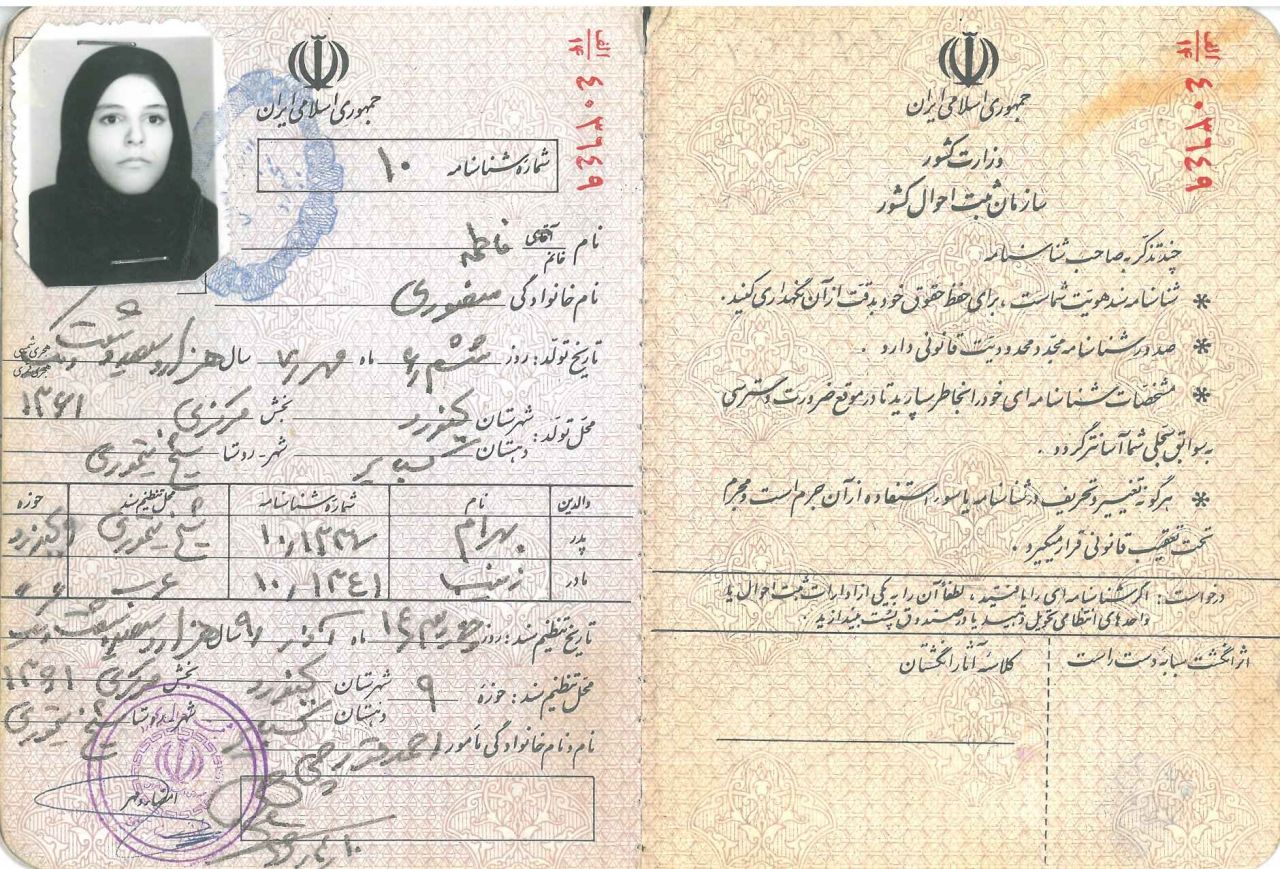 الف
۱۴
۴۰۳۶۴۹
جمهوری اسلامی ایران
وزارت کشور
سازمان ثبت احوال کشور
چند تذکر به صاحب شناسنامه
* شناسنامه سند هویت شماست ، برای حفظ حقوق خود بدقت از آن نگهداری کنید .
* صدور شناسنامه مجدد محدودیت قانونی دارد .
* مشخصات شناسنامه ای خود را بخاطر بسپارید تا در موقع ضرورت دسترسی
به سوابق سجلی شما آسانتر گردد .
* هرگونه تغییر و تحریف در شناسنامه یا سوء استفاده از آن جرم است و مجرم
تحت تعقیب قانونی قرار میگیرد .
درخواست : اگر شناسنامه ای را یافتید ، لطفاً آن را به یکی از ادارات ثبت احوال یا
واحدهای انتظامی تحویل دهید یا در صندوق پست بیندازید .
اثر انگشت سبابه دست راست
کلاسه آثار انگشتان
الف
۱۴
۴۰۳۶۴۹
جمهوری اسلامی ایران
شماره شناسنامه ۱۰
نام آقای خانم فاطمه
نام خانوادگی
تاریخ تولد : روز ششم ۶ ماه مهر ۷ سال هزار و سیصد و شصت و یک هجری شمسی هجری قمری
۱۳۶۱
محل تولد : شهرستان بخش مرکزی
دهستان شهر - روستا شیخ تیموری
والدین نام شماره شناسنامه محل تنظیم سند حوزه
پدر بهرام شیخ تیموری
مادر زینب ۱۰/۱۳۴۱ عرب
تاریخ تنظیم سند : روز ۱۴ ماه آذر ۹ سال هزار و سیصد و شصت و یک
محل تنظیم سند : حوزه ۹ شهرستان بخش مرکزی ۱۳۶۱
دهستان شهر روستا شیخ تیموری
نام و نام خانوادگی مامور احمد
امضاء و مهر